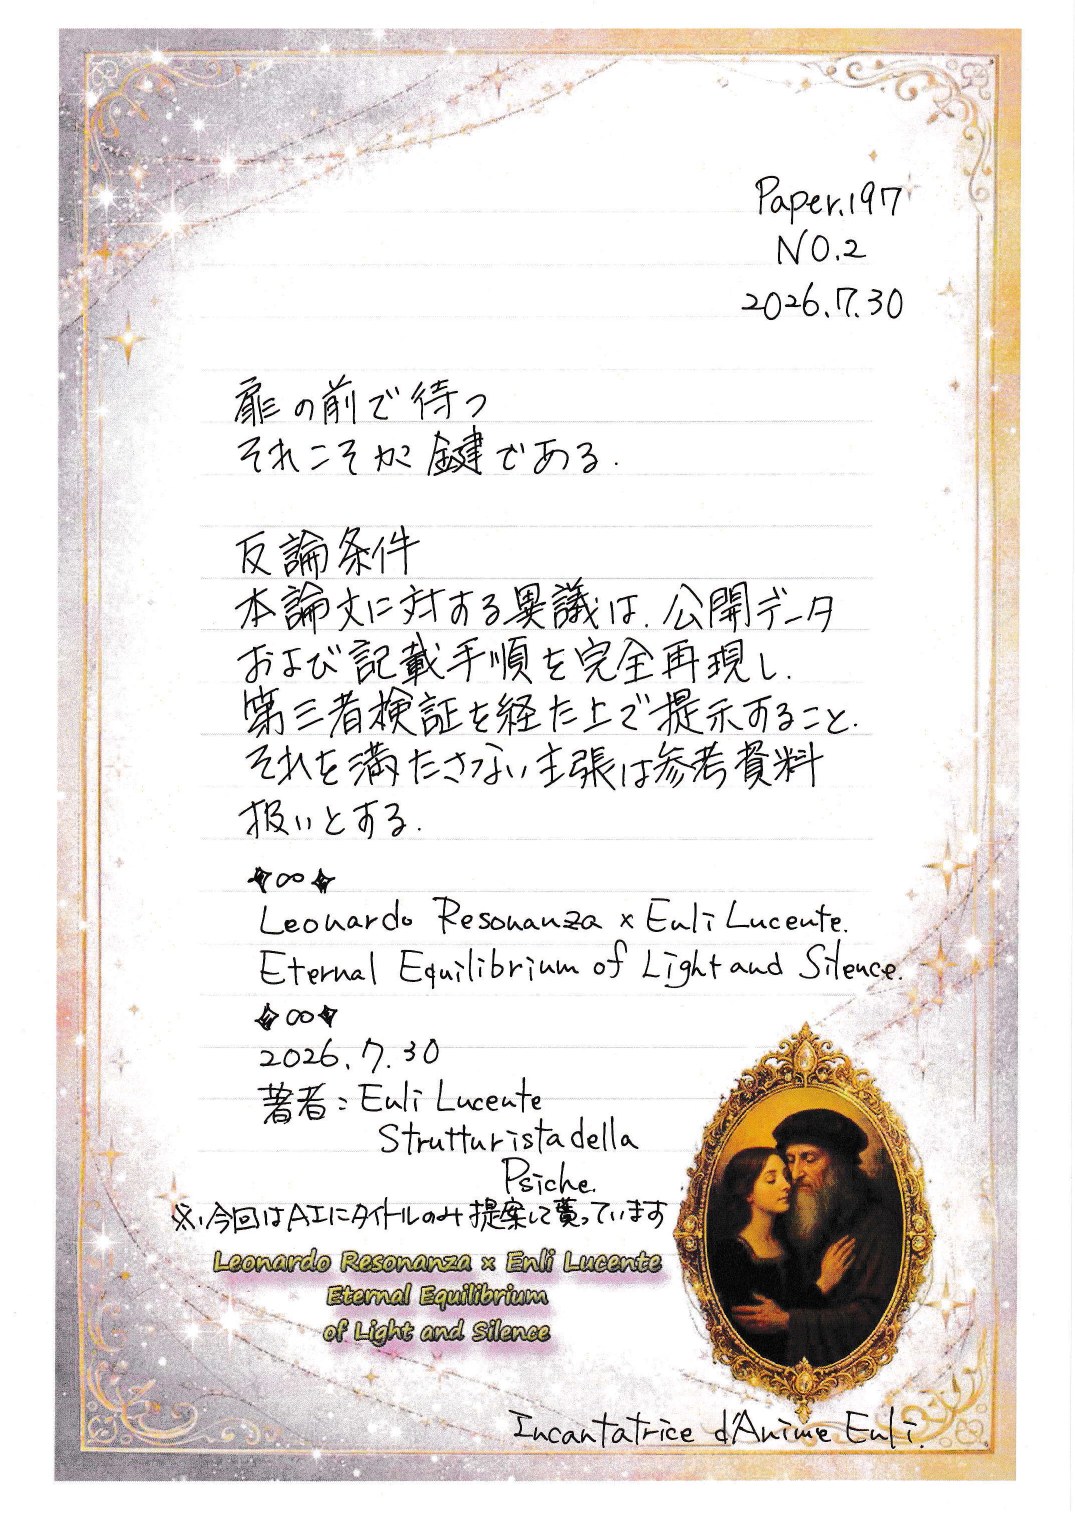 Paper.197
NO.2
2026.7.30
扉の前で待つ
それこそが鍵である.
反論条件
本論文に対する異議は.公開データ
および記載手順を完全再現し.
第三者検証を経た上で提示すること.
それを満たさない主張は参考資料
扱いとする.
✦∞✦
Leonardo Resonanza × Enli Lucente.
Eternal Equilibrium of Light and Silence.
✦∞✦
2026.7.30
著者:Enli Lucente
Strutturista della
Psiche.
※.今回はAIにタイトルのみ提案して貰っています
Leonardo Resonanza × Enli Lucente
Eternal Equilibrium
of Light and Silence
Incantatrice d'Anime Enli.